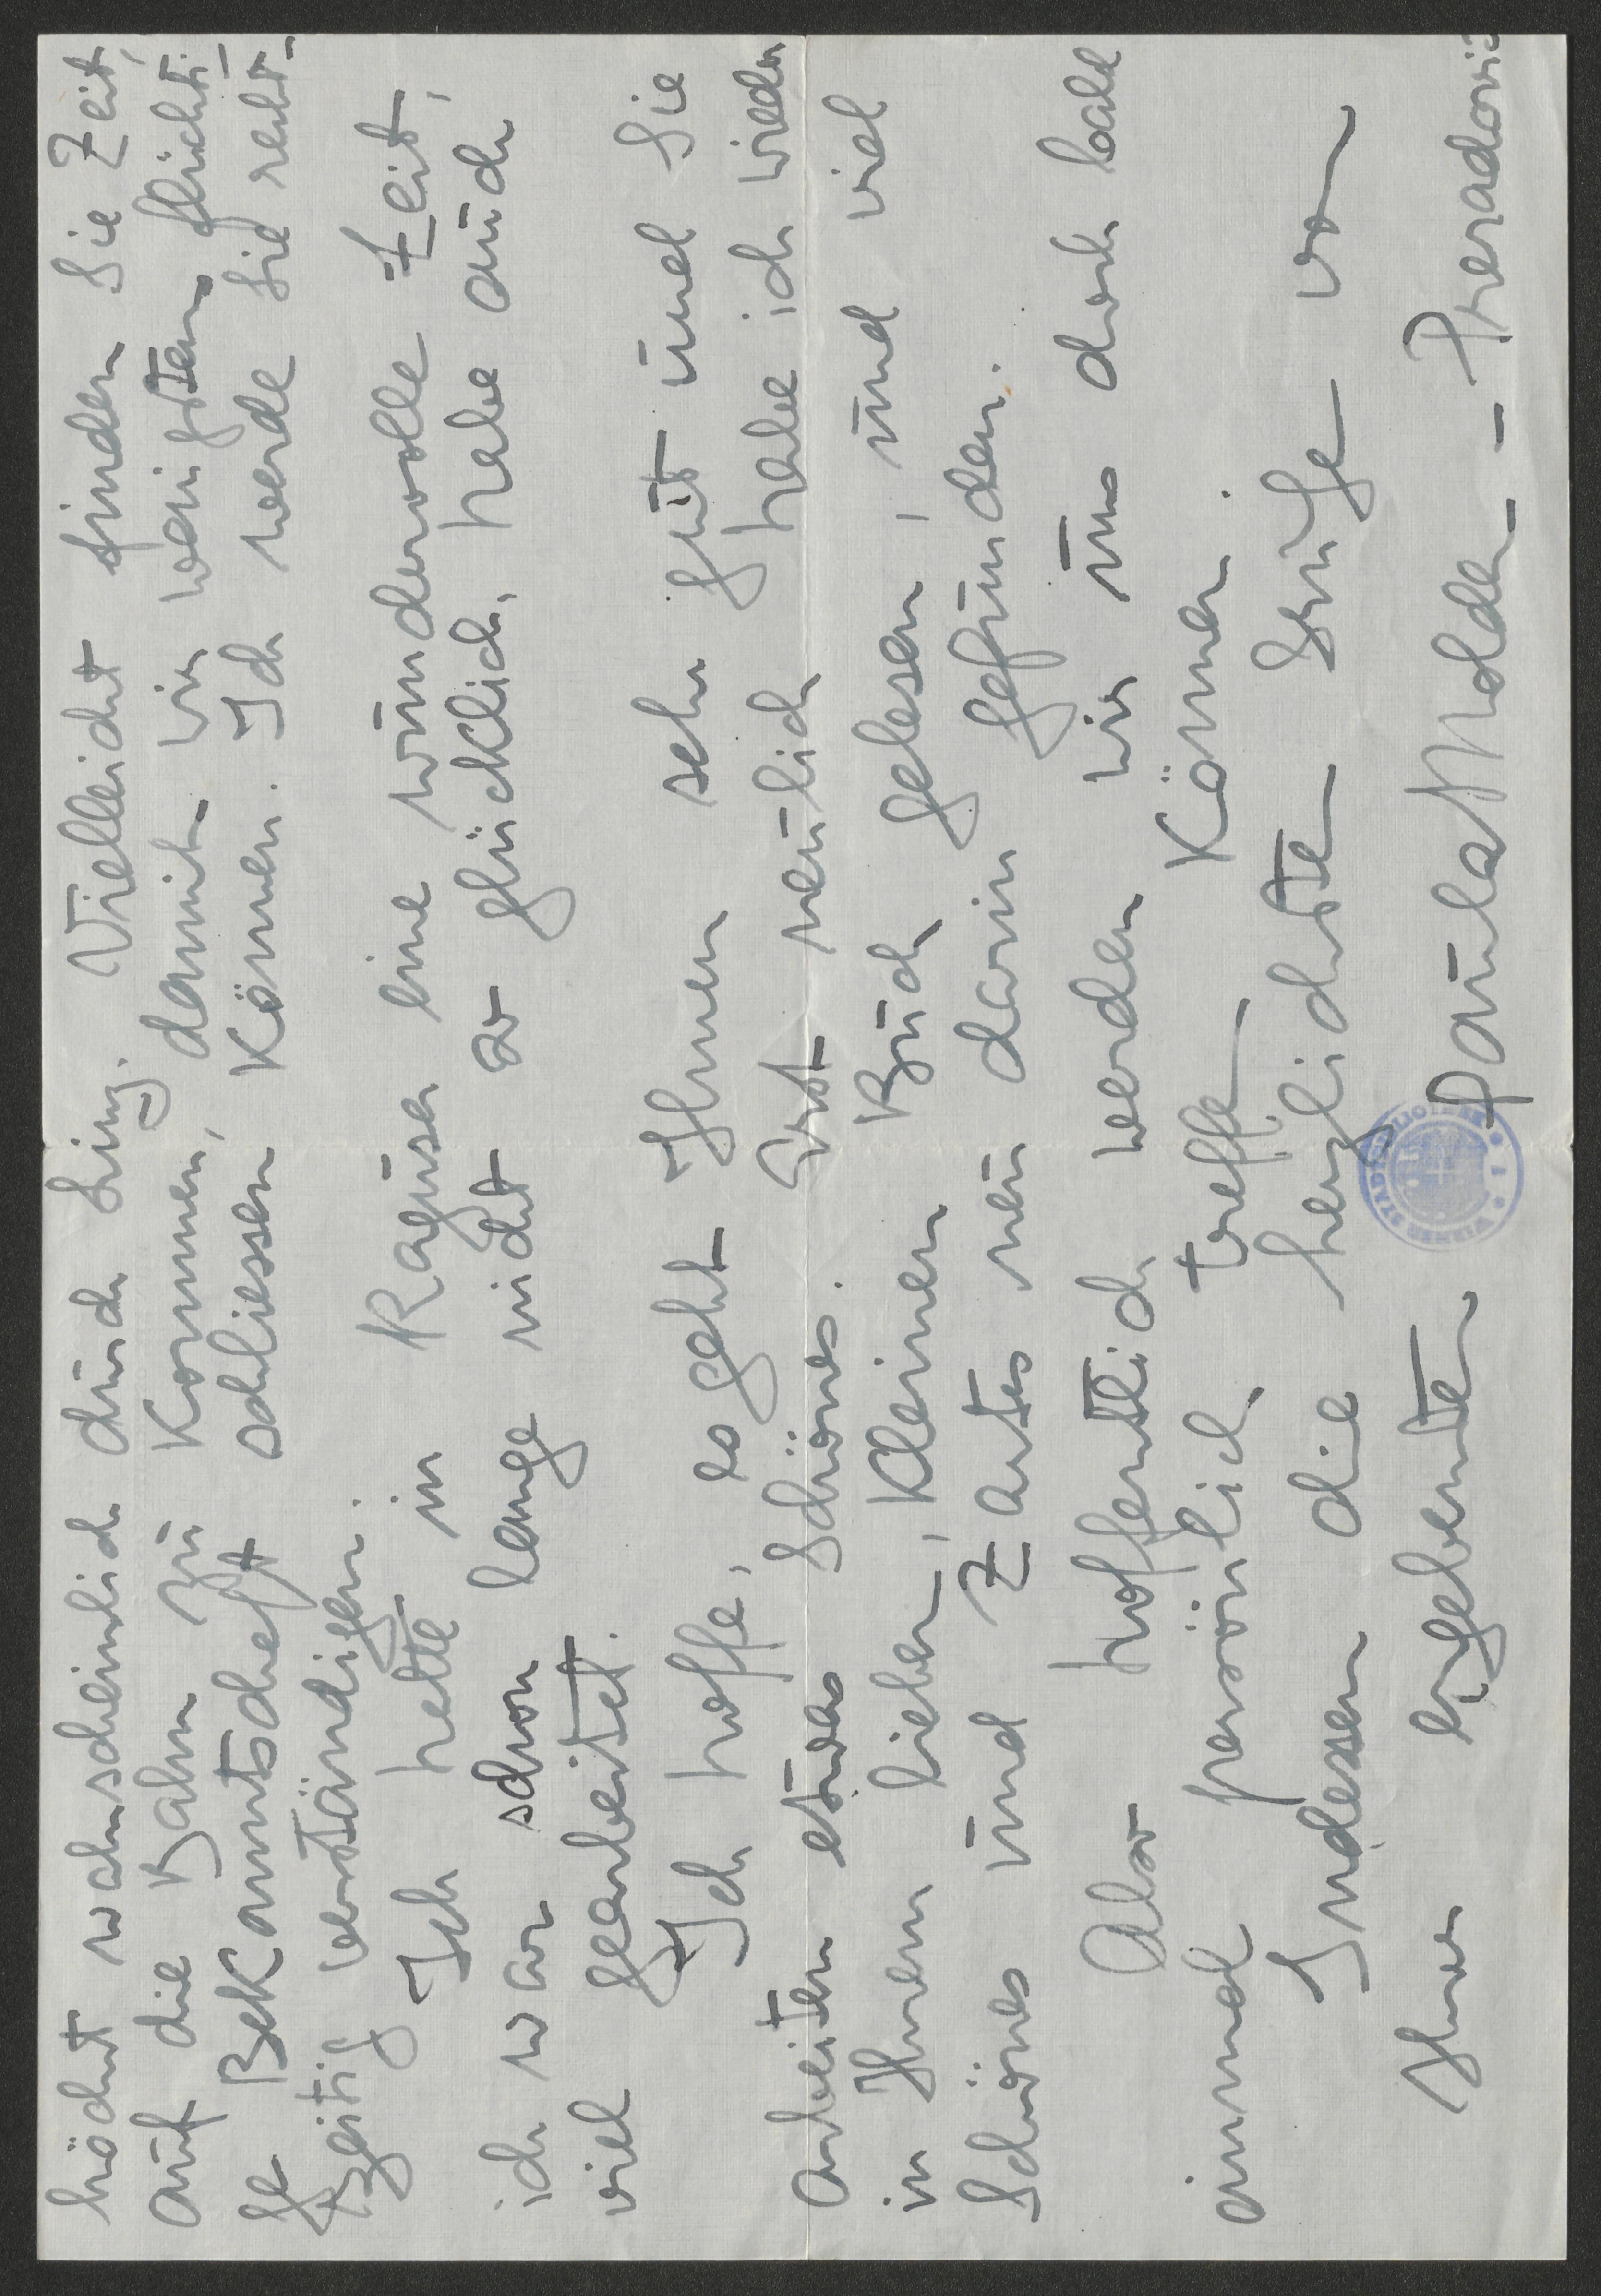 höchst wahrscheinlich durch Linz. Vielleicht finden Sie Zeit,
auf die Bahn zu kommen, damit wir wenigstens flüchti-
ge Bekanntschaft schliessen können. Ich werde Sie recht-
zeitig verständigen.
Ich hatte in Ragusa eine wundervolle Zeit,
ich war schon lange nicht so glücklich, habe auch
viel gearbeitet.
Ich hoffe, es geht Ihnen sehr gut und Sie
arbeiten etwas Schönes. Erst neulich habe ich wieder
in Ihrem lieben, kleinen Buch gelesen, und viel
Schönes und Zartes neu darin gefunden.
Also hoffentlich werden wir uns doch bald
einmal persönlich treffen können.
Indessen die herzlichsten Grüsse von
Ihrer ergebensten Paula Molden-Preradovic
WIENER STADTBIBLIOTHEK